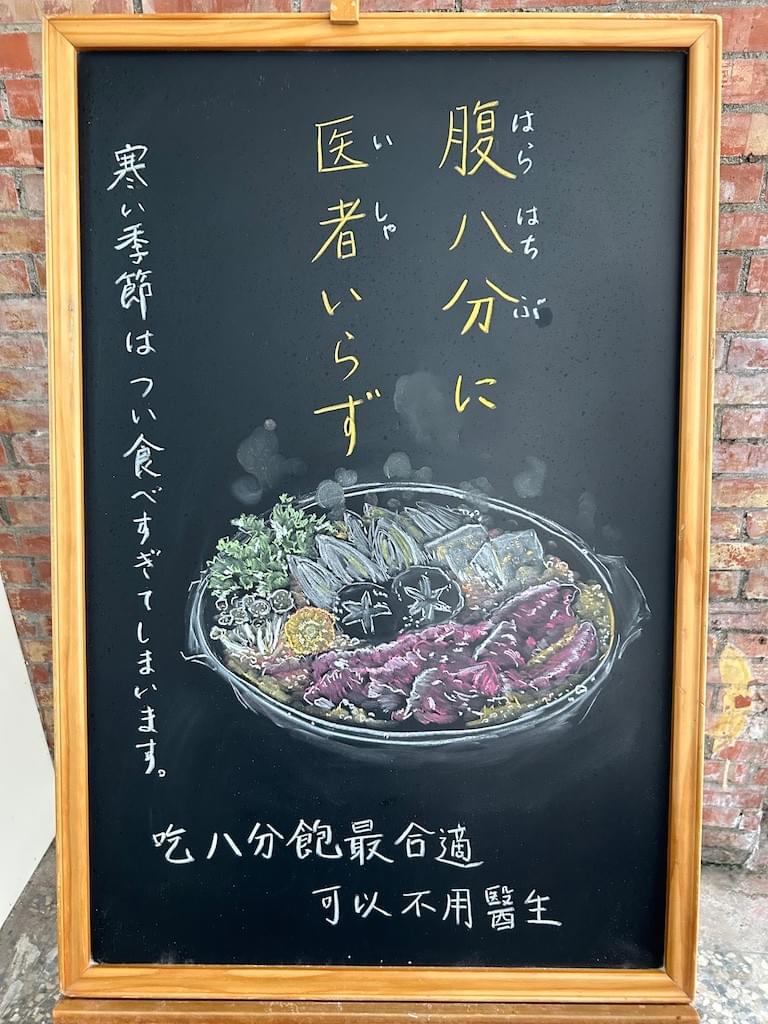 腹八分に
はら はち ぶ
医者いらず
い しゃ
寒い季節はつい食べすぎてしまいます。
吃八分飽最合適
可以不用醫生